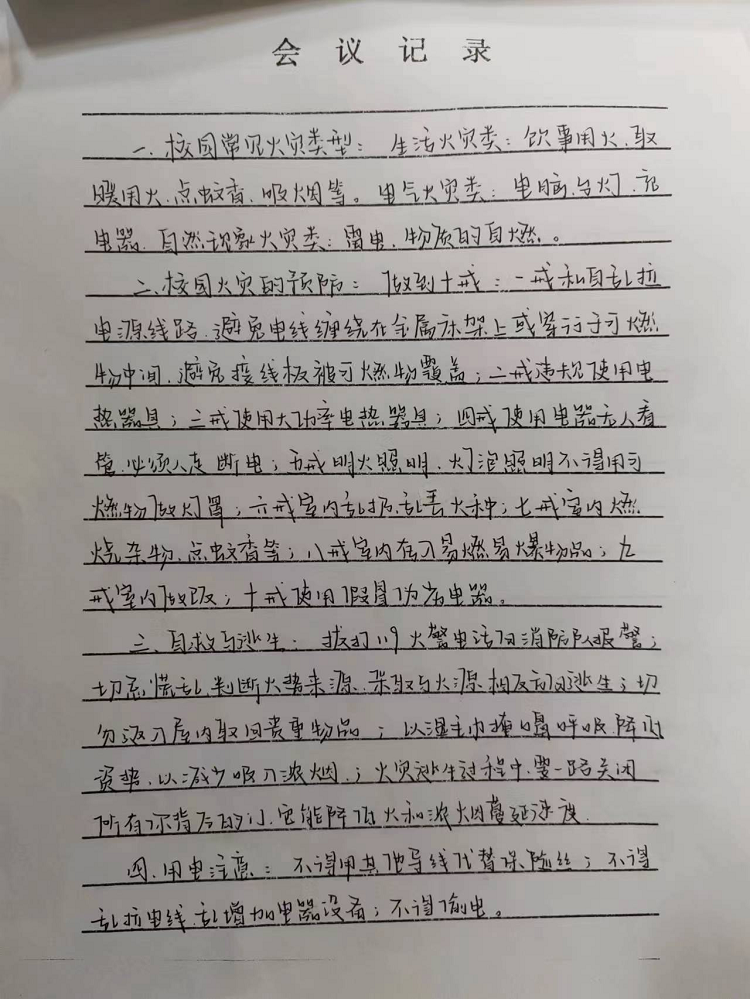 会议记录
一、校园常见火灾类型：生活火灾类：炊事用火、取
暖用火、点蚊香、吸烟等。电气火灾类：电脑、台灯、充
电器、自然现象火灾类：雷电、物质的自燃。
二、校园火灾的预防：做到十戒：一戒私自乱拉
电源线路、避免电线缠绕在金属床架上或穿行于可燃
物中间、避免接线板被可燃物覆盖；二戒违规使用电
热器具；三戒使用大功率电热器具；四戒使用电器无人看
管、必须人走断电；五戒明火照明、灯泡照明不得用可
燃物做灯罩；六戒室内乱扔、乱丢火种；七戒室内燃
烧杂物、点蚊香等；八戒室内存入易燃易爆物品；九
戒室内做饭；十戒使用假冒伪劣电器。
三、自救与逃生：拨打119火警电话向消防队报警；
切忌慌乱、判断火势来源、采取与火源相反方向逃生；切
勿返入屋内取回贵重物品；以湿毛巾掩口鼻呼吸、降低
姿势、以减少吸入浓烟；火灾逃生过程中、要一路关闭
所有你背后的门、它能降低火和浓烟蔓延速度
四、用电注意：不得用其他导线代替保险丝；不得
乱拉电线、乱增加电器设备；不得偷电。